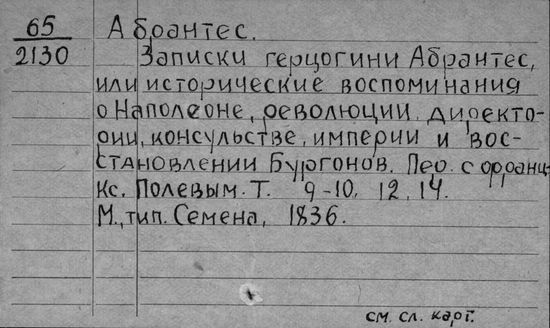 65
2130
Абрантес.
Записки герцогини Абрантес,
или исторические воспоминания
о Наполеоне, революции, директо-
рии, консульстве, империи и вос-
становлении Бургонов. Пер. с франц.
Кс. Полевым. Т. 9-10, 12, 14.
М., тип. Семена, 1836.
см. сл. карт.